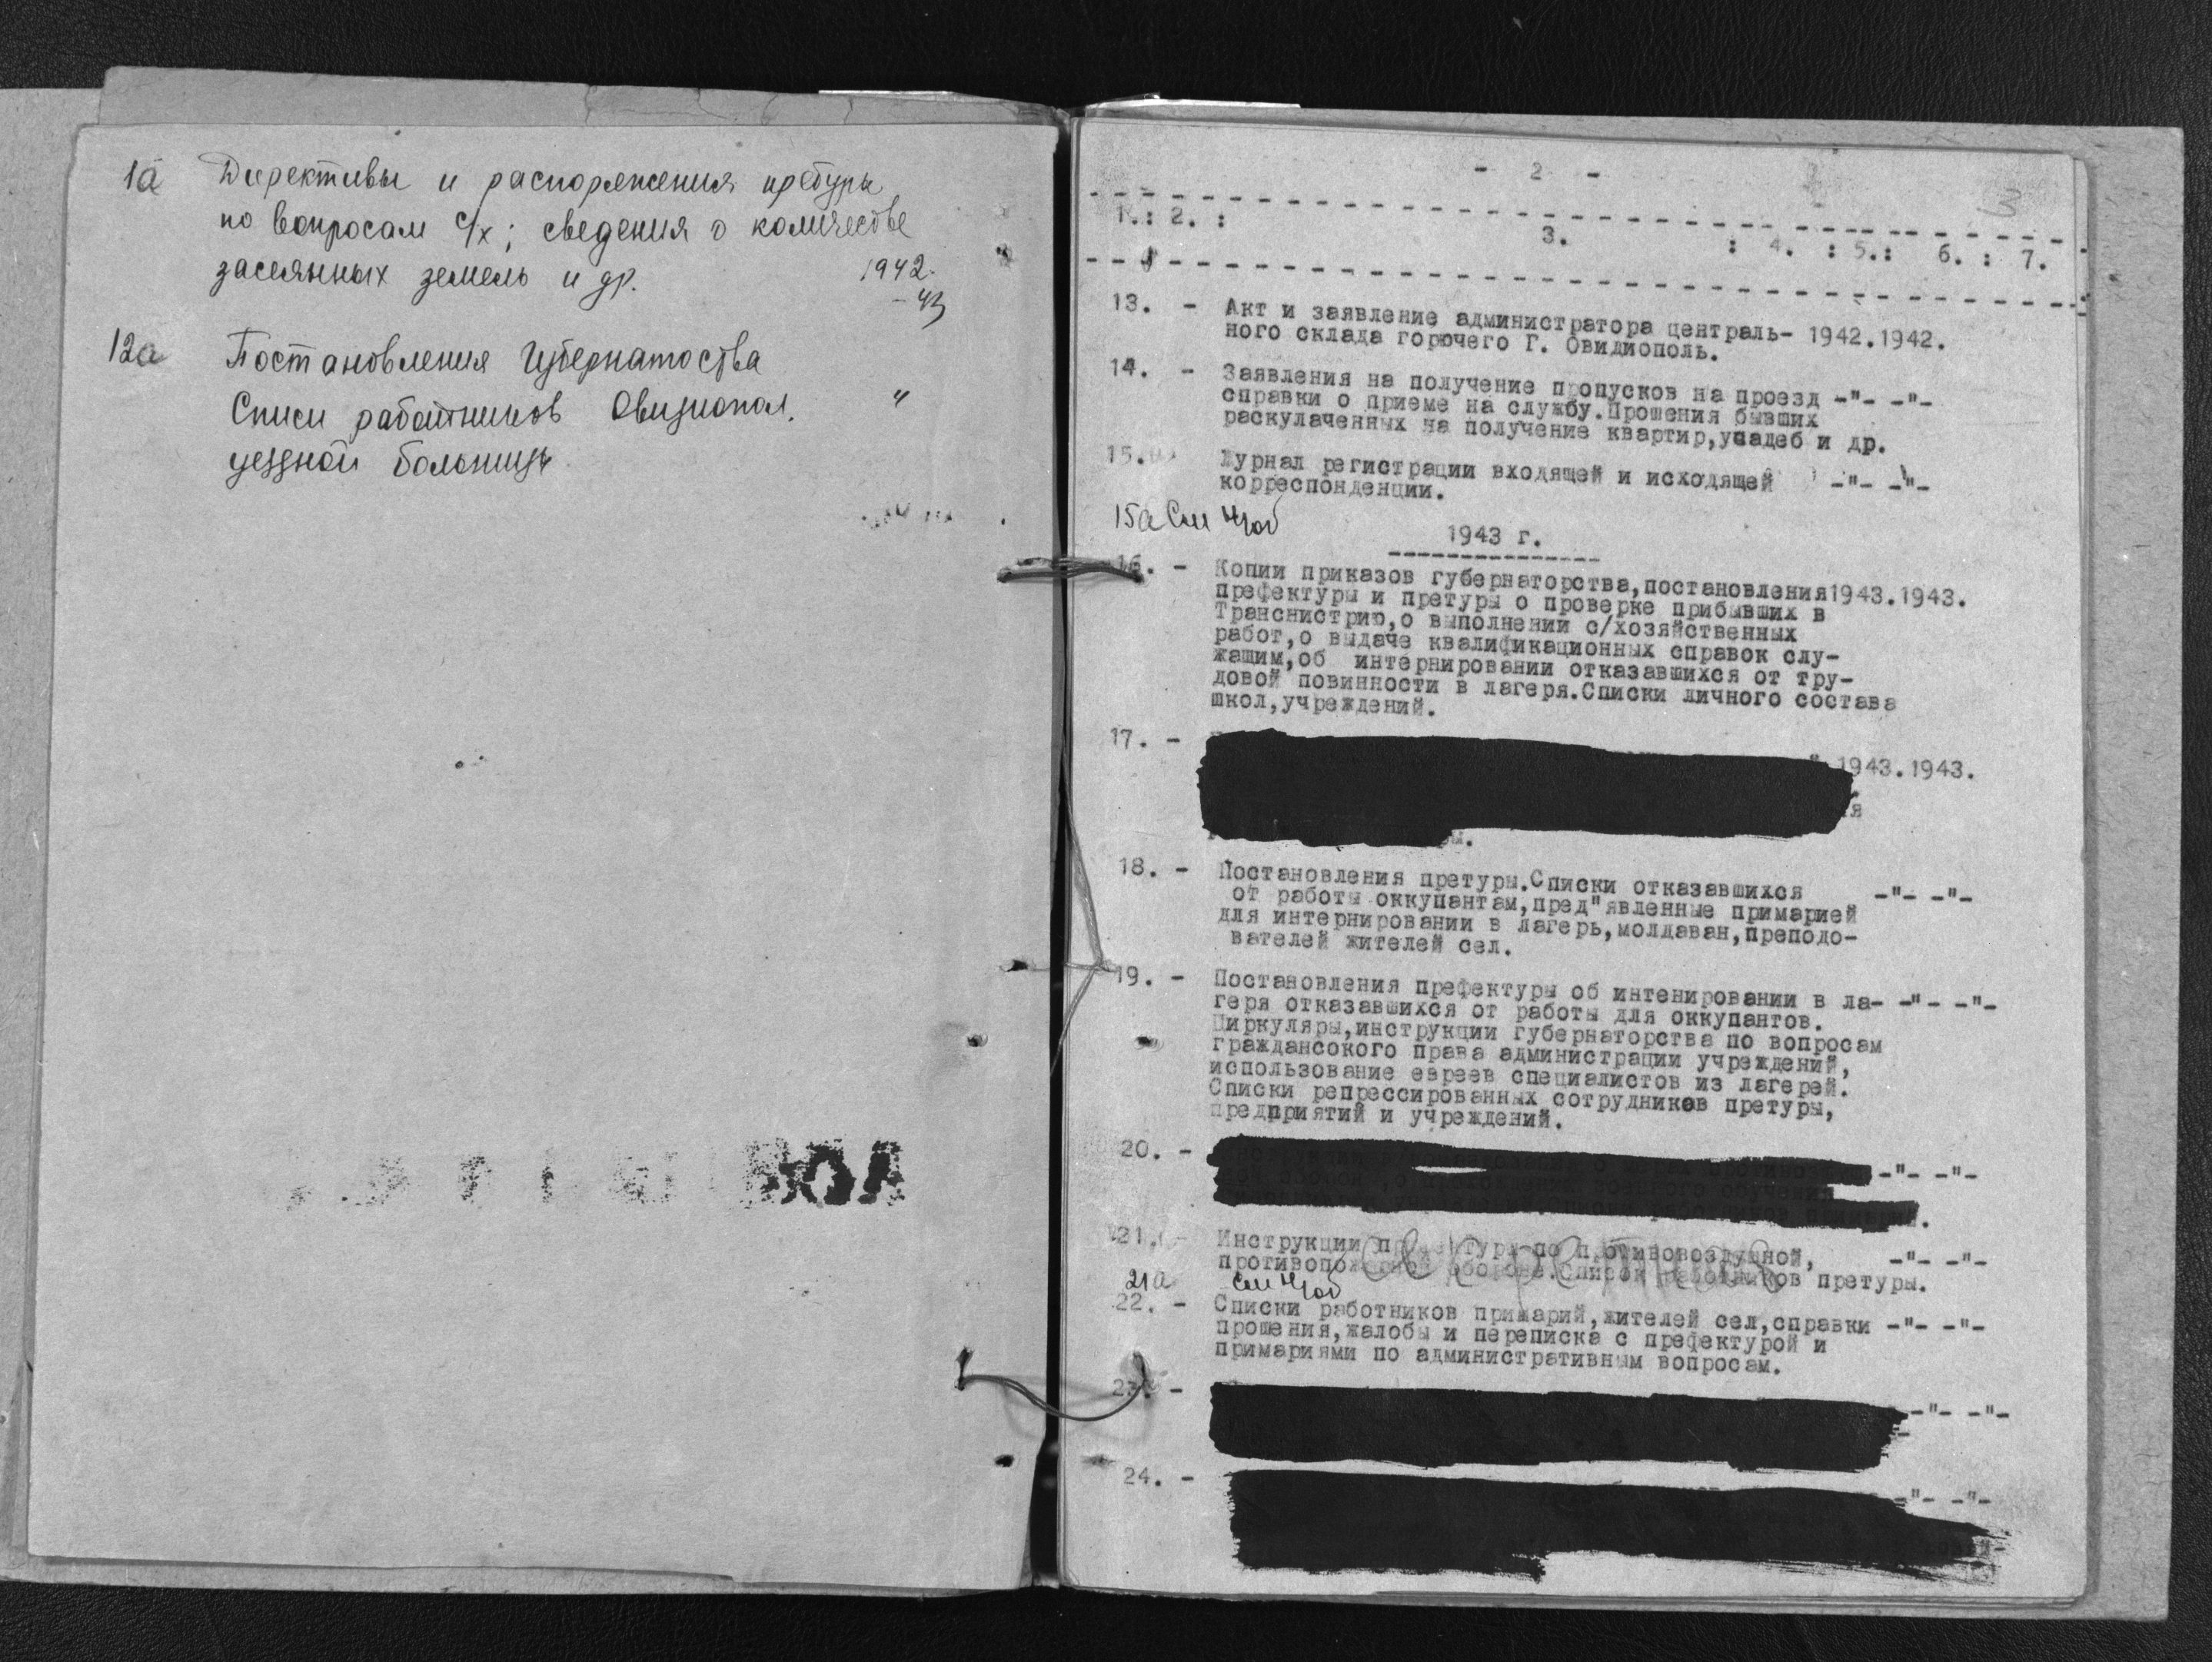 1а Директивы и распоряжения претуры
по вопросам с/х; сведения о количестве
засеянных земель и др. 1942-
-43
12а Постановления Губернаторства
Списки работников Овидиопол. "
уездной больницы
- 2 -
3
1.: 2. : 3. : 4. : 5.: 6. : 7.
13. - Акт и заявление администратора централь- 1942.1942.
ного склада горючего Г. Овидиополь.
14. - Заявления на получение пропусков на проезд -"- -"-
справки о приеме на службу.Прошения бывших
раскулаченных на получение квартир,усадеб и др.
15. Журнал регистрации входящей и исходящей -"- -"-
корреспонденции.
15а См
1943 г.
16. - Копии приказов губернаторства,постановления1943.1943.
префектуры и претуры о проверке прибывших в
Транснистрию,о выполнении с/хозяйственных
работ,о выдаче квалификационных справок слу-
жащим,об интернировании отказавшихся от тру-
довой повинности в лагеря.Списки личного состава
школ,учреждений.
17. - 1943.1943.
18. - Постановления претуры.Списки отказавшихся -"- -"-
от работы оккупантам,пред"явленные примарией
для интернировании в лагерь,молдаван,преподо-
вателей жителей сел.
19. - Постановления префектуры об интенировании в ла- -"- -"-
геря отказавшихся от работы для оккупантов.
Циркуляры,инструкции губернаторства по вопросам
граждансокого права администрации учреждений,
использование евреев специалистов из лагерей.
Списки репрессированных сотрудников претуры,
предприятий и учреждений.
20. - -"- -"-
обучения
21. - Инструкции по противовоздушной, -"- -"-
обороне.Список работников претуры.
21а См
22. - Списки работников примарий,жителей сел,справки -"- -"-
прошения,жалобы и переписка с префектурой и
примариями по административным вопросам.
23. - -"- -"-
24. - -"- -"-